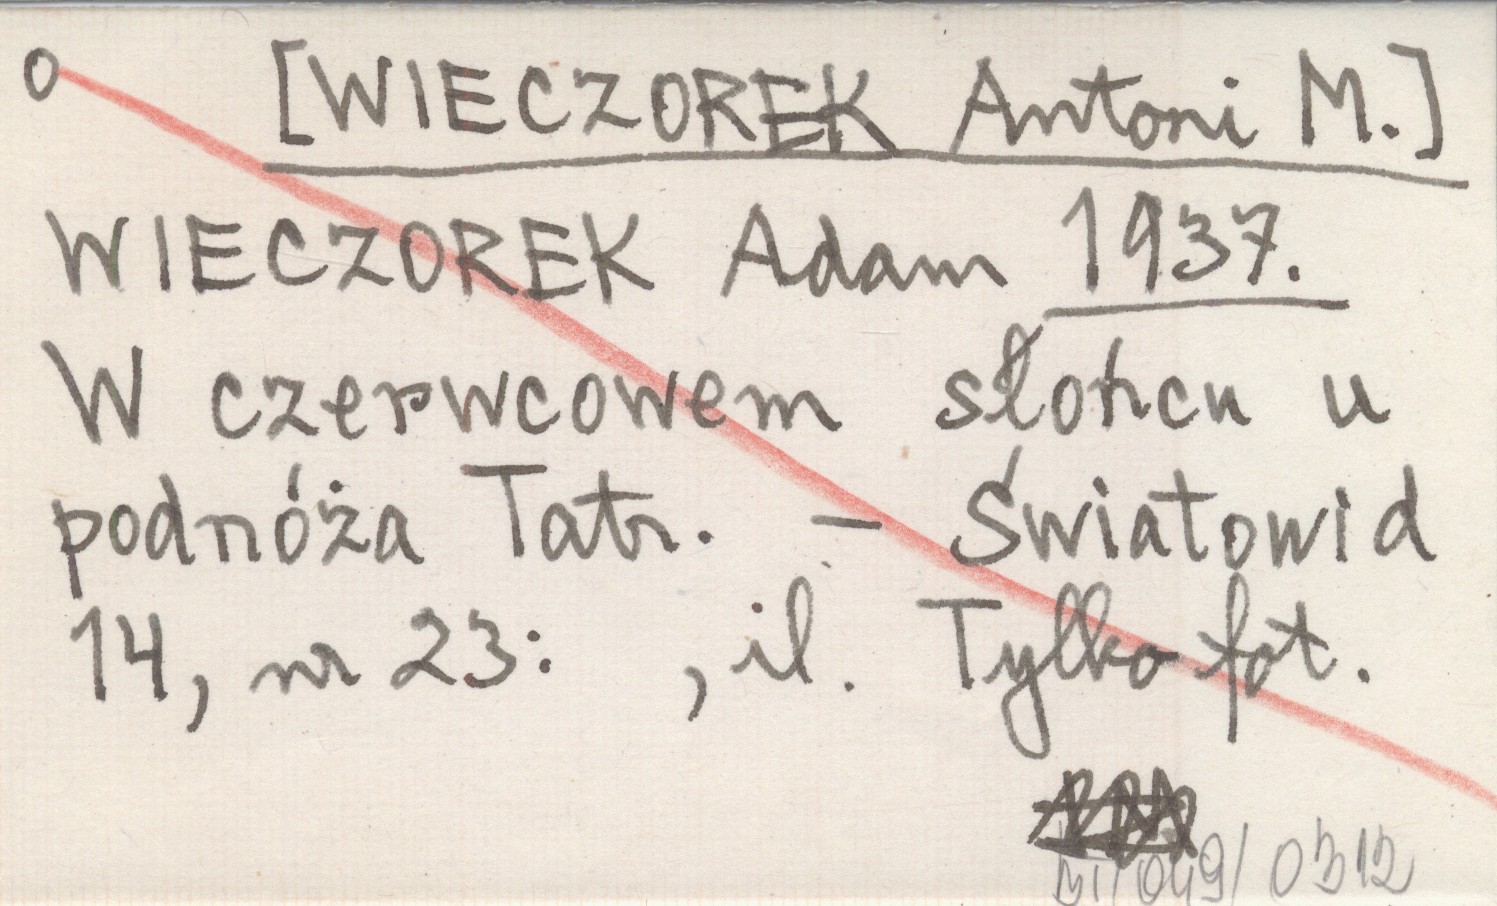 O [WIECZOREK Antoni M.]
WIECZOREK Adam 1937.
W czerwcowem słońcu u
podnóża Tatr. – Światowid
14, nr 23: , il. Tylko fot.
/ 0312